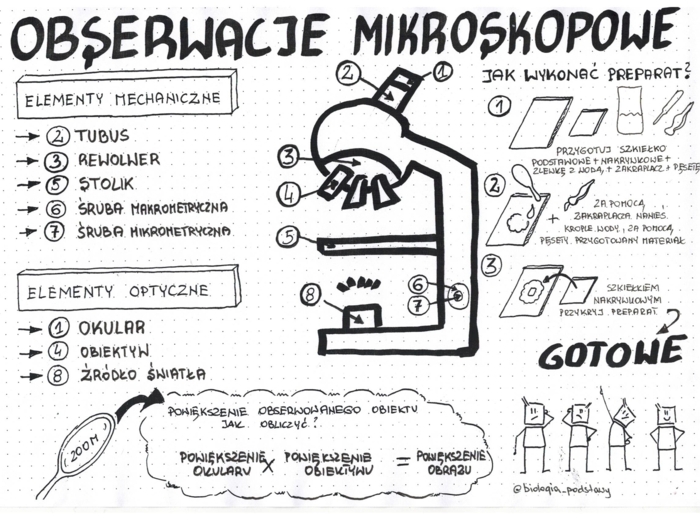 OBSERWACJE MIKROSKOPOWE
ELEMENTY MECHANICZNE
② TUBUS
③ REWOLWER
⑤ STOLIK
⑥ ŚRUBA MAKROMETRYCZNA
⑦ ŚRUBA MIKROMETRYCZNA
ELEMENTY OPTYCZNE
① OKULAR
④ OBIEKTYW
⑧ ŹRÓDŁO ŚWIATŁA
②
①
③
④
⑤
⑥
⑦
⑧
JAK WYKONAĆ PREPARAT?
①
PRZYGOTUJ SZKIEŁKO
PODSTAWOWE + NAKRYWKOWE +
ZLEWKĘ Z WODĄ + ZAKRAPLACZ + PĘSETĘ
②
+
ZA POMOCĄ
ZAKRAPLACZA NANIEŚ
KROPLĘ WODY, ZA POMOCĄ
PĘSETY PRZYGOTOWANY MATERIAŁ
③
SZKIEŁKIEM
NAKRYWKOWYM
PRZYKRYJ PREPARAT
GOTOWE
ZOOM
POWIĘKSZENIE OBSERWOWANEGO OBIEKTU
JAK OBLICZYĆ?
POWIĘKSZENIE OKULARU x POWIĘKSZENIE OBIEKTYWU = POWIĘKSZENIE OBRAZU
@biologia_podstawy